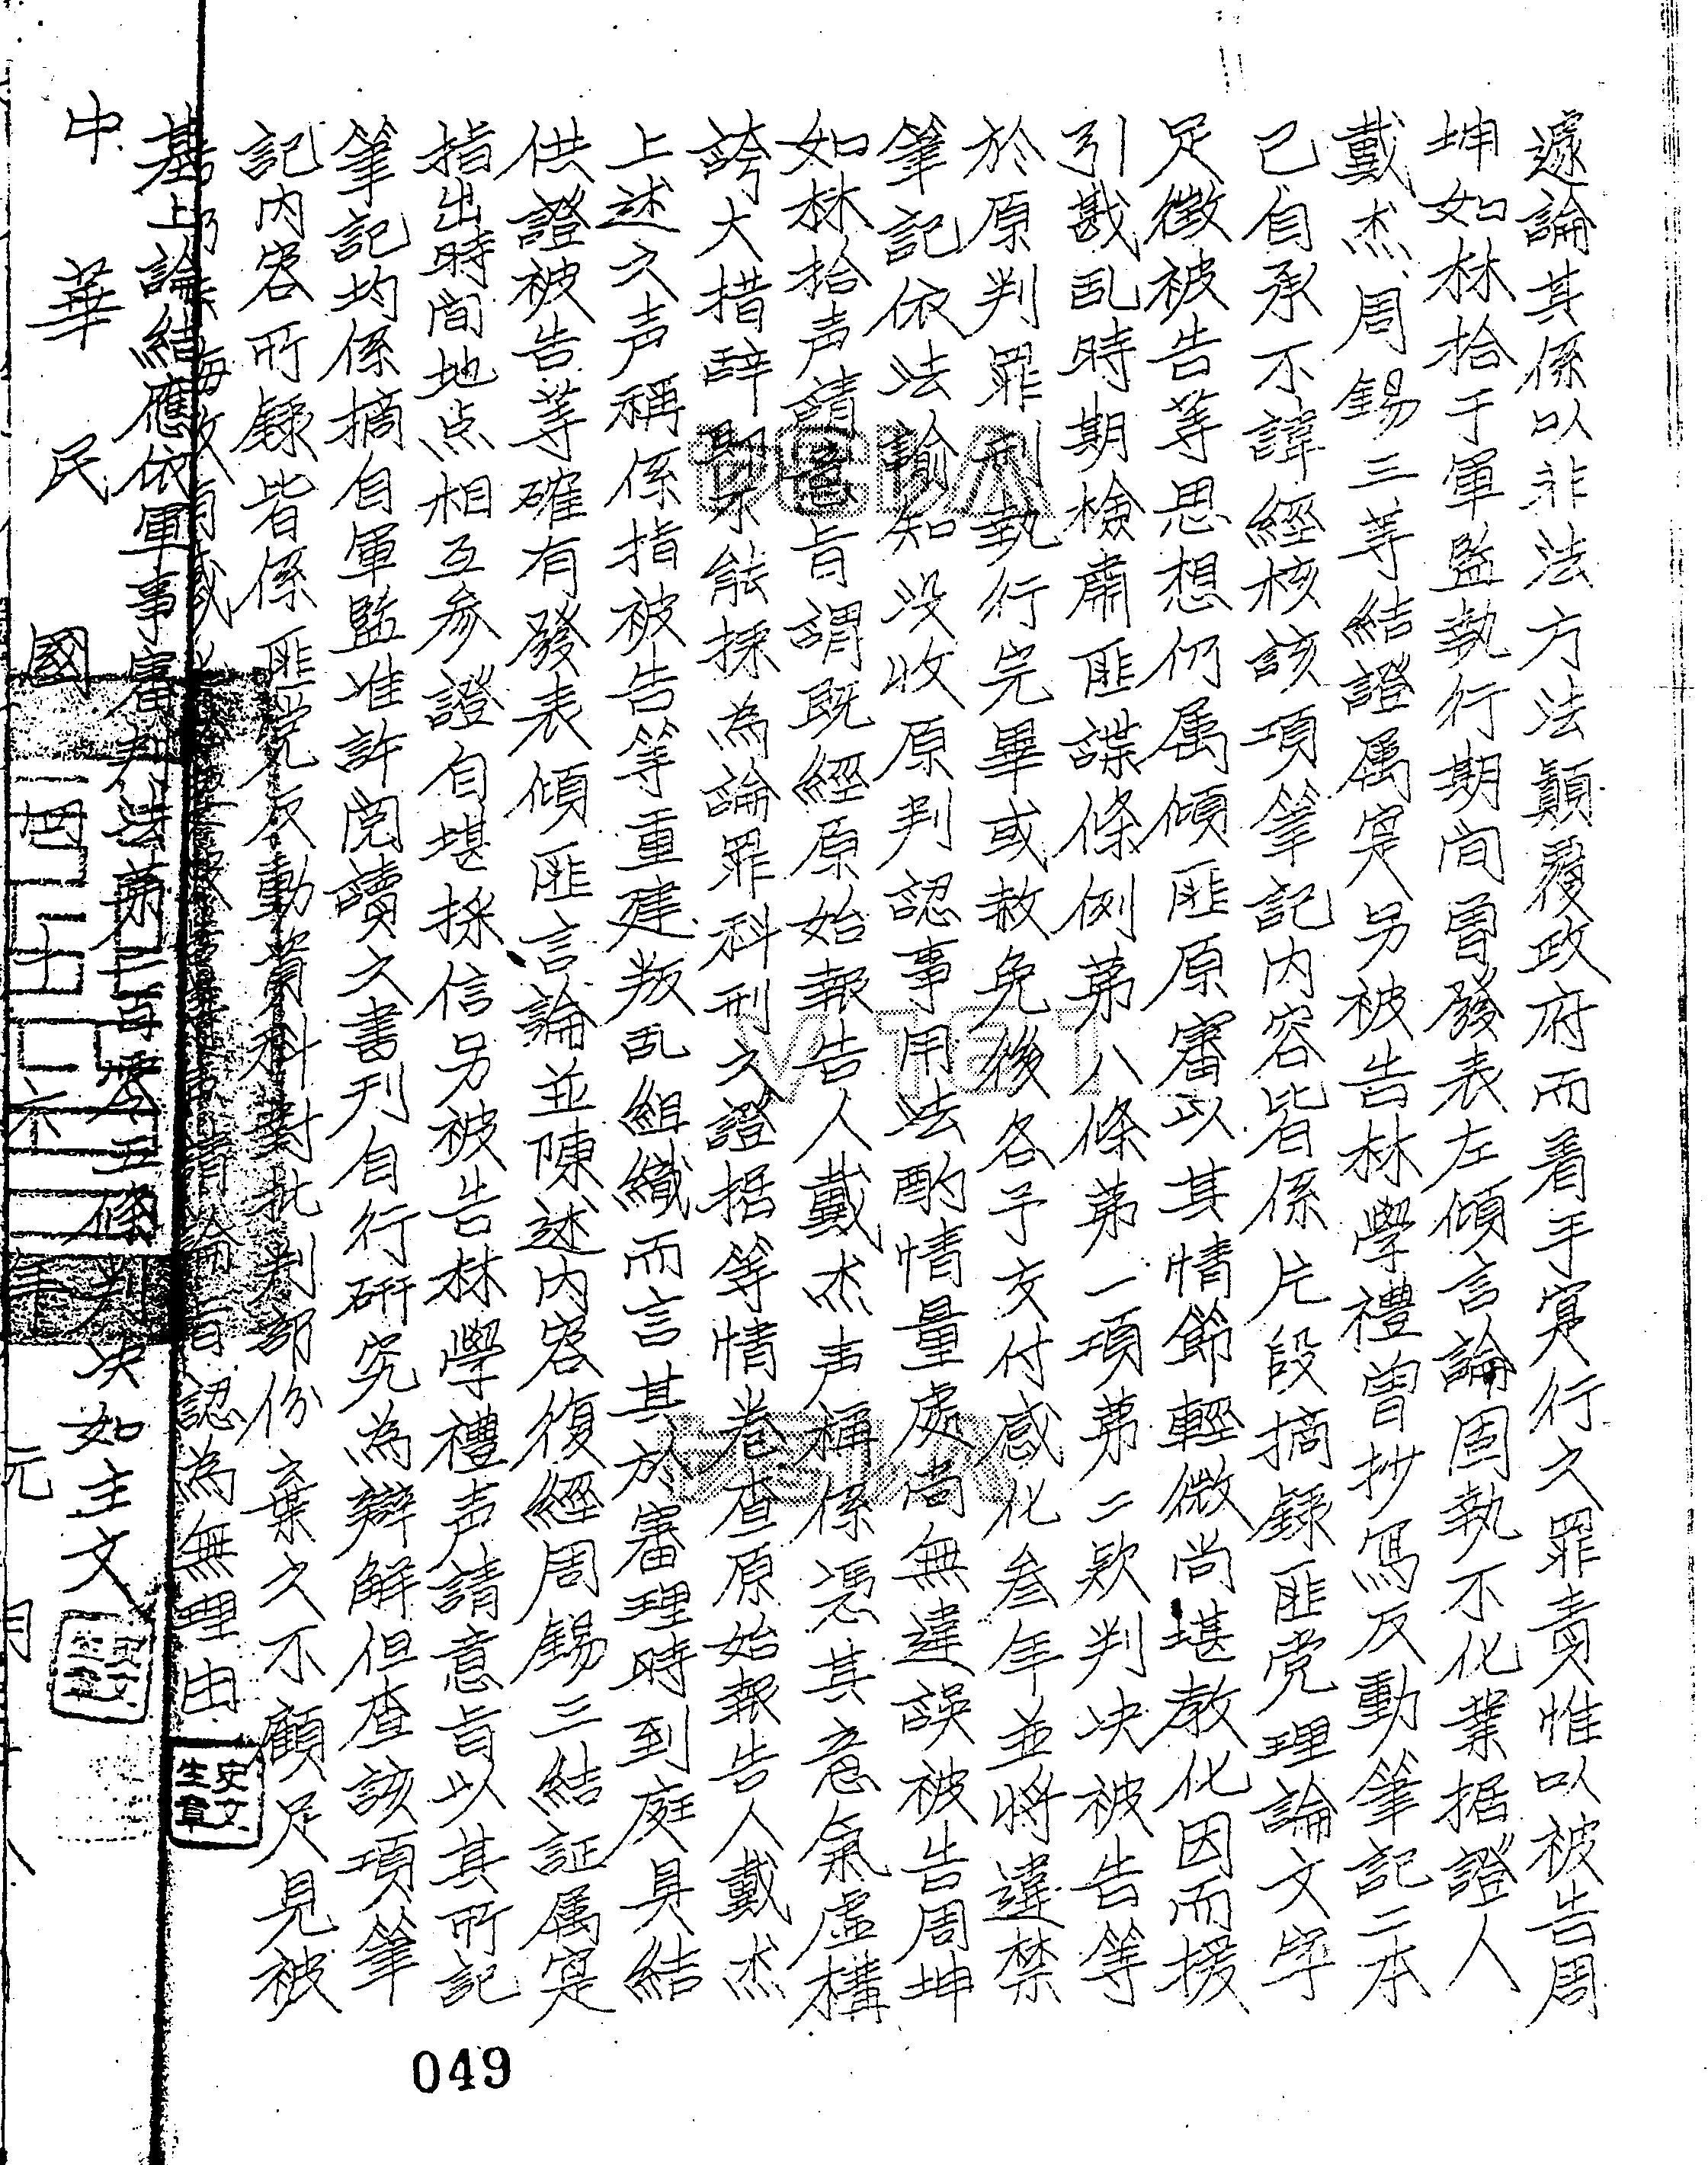 遽論其係以非法方法顛覆政府而着手实行之罪責惟以被告周
坤如林拾于軍監執行期间曾發表左傾言論固執不化業据證人
戴杰、周錫三等結證属实另被告林學禮曾抄写反動筆記二本
已自承不諱經核該項筆記内容皆係片段摘錄匪党理論文字
足徵被告等思想仍属傾匪原審以其情節輕微尚堪教化因而援
引戡乱時期檢肅匪諜條例第八條第一項第二款判决被告等
於原判罪刑執行完畢或赦免後各予交付感化叁年並将違禁
筆記依法諭知没收原判認事用法酌情量處尚無違誤被告周坤
如林拾声請意旨謂既經原始報告人戴杰声稱係憑其意氣虚構
誇大措辞即不能採為論罪科刑之證据等情卷查原始報告人戴杰
上述之声稱係指被告等重建叛乱組織而言其於審理時到庭具結
供證被告等確有發表傾匪言論並陳述内容復經周錫三結証属实
指出時间地点相互参證自堪採信另被告林學禮声請意旨以其所記
筆記均係摘自軍監准許阅讀之書刊自行研究為辯解但查該項筆
記内容所錄皆係匪党反動資料對批判部份棄之不顧足見被
認為無理由
史文生章
基上論結應依軍事審判法第二百零五條判决如主文
中華民國四十六年元月
049